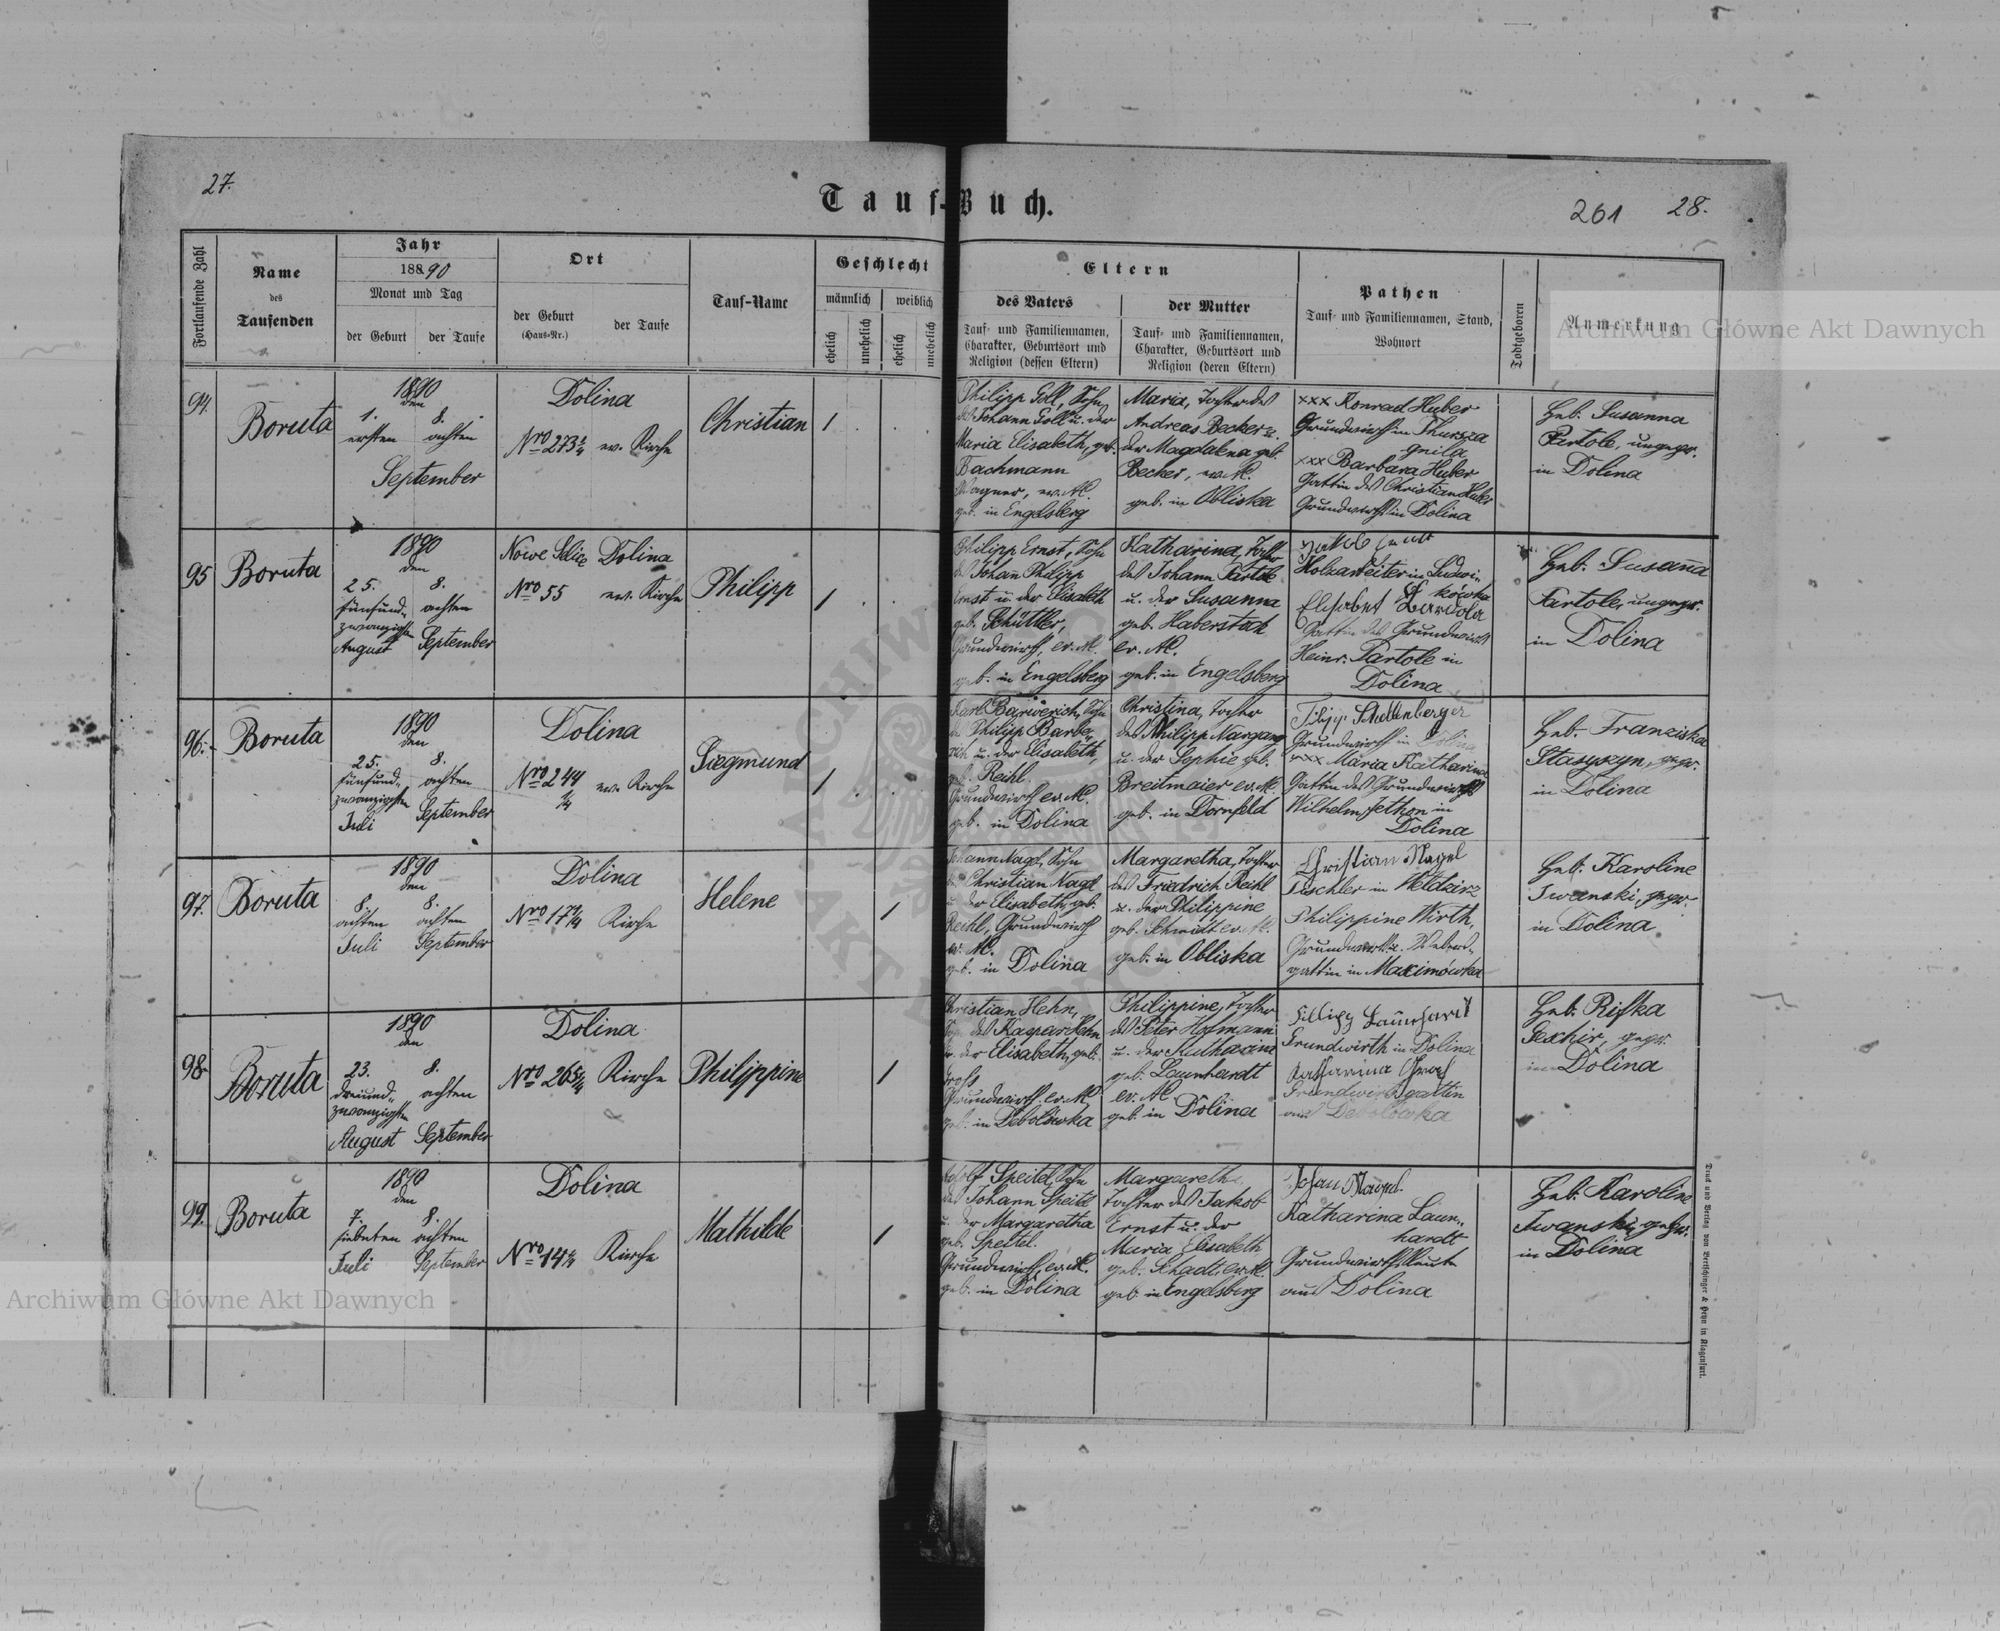 27.
Tauf-Buch.
261 28.
Fortlaufende Zahl
Name
des
Taufenden
Jahr
188 90
Monat und Tag
der Geburt
der Taufe
Ort
der Geburt
(Haus-Nr.)
der Taufe
Tauf-Name
Geschlecht
männlich
weiblich
ehelich
unehelich
ehelich
unehelich
Eltern
des Vaters
Tauf- und Familiennamen,
Charakter, Geburtsort und
Religion (dessen Eltern)
der Mutter
Tauf- und Familiennamen,
Charakter, Geburtsort und
Religion (deren Eltern)
Pathen
Tauf- und Familiennamen, Stand,
Wohnort
Todtgeboren
Anmerkung
Archiwum Główne Akt Dawnych
94.
Boruta
1890
den
1. 8.
ersten achten
September
Dolina
Nro 273 ev. Kirche
Christian
1
Philipp Goll, Sohn
des Johann Goll u. der
Maria Elisabeth, geb.
Bachmann
Wagner, ev. A.
geb. in Engelsberg
Maria, Tochter des
Andreas Becker u.
der Magdalena geb.
Becker, ev. A.
geb. in Obliska
xxx Konrad Huber
Grundwirth in Thursza
gnila
xxx Barbara Huber
Gattin des Christian Huber
Grundwirth in Dolina
Heb. Susanna
Bartole, ungepr.
in Dolina
95
Boruta
1890
den
25. 8.
fünfund- achten
zwanzigsten
August September
Nowe Selice Dolina
Nro 55 ev. Kirche
Philipp
1
Philipp Ernst, Sohn
des Johann Philipp
Ernst u. der Elisabeth
geb. Schüttler,
Grundwirth, ev. A.
geb. in Engelsberg
Katharina, Tochter
des Johann Bartole
u. der Susanna
geb. Haberstock
ev. A.
geb. in Engelsberg
Holzarbeiter in Ludwi-
kówka
Elisabet Bartola
Gattin des Grundwirths
Heinr. Bartole in
Dolina
Heb. Susanna
Bartole, ungepr.
in Dolina
96.
Boruta
1890
den
25. 8.
fünfund- achten
zwanzigsten
Juli September
Dolina
Nro 244 ev. Kirche
1/4
Siegmund
1
Karl Barwerich, Sohn
des Philipp Barbe-
rich u. der Elisabeth,
geb. Reihl
Grundwirth ev. A.
geb. in Dolina
Christina, Tochter
des Philipp Nargang
u. der Sophie geb.
Breitmaier ev. A.
geb. in Dornfeld
Filipp Schellenberger
Grundwirth in Dolina
xxx Maria Katharina
Gattin des Grundwirths
Wilhelm Jethon in
Dolina
Heb. Franziska
Stasyszyn, gepr.
in Dolina
97.
Boruta
1890
den
8. 8.
achten achten
Juli September
Dolina
Nro 17 1/4 Kirche
Helene
1
Johann Nagel, Sohn
des Christian Nagel
u. der Elisabeth, geb.
Reihl, Grundwirth
ev. A.
geb. in Dolina
Margaretha, Tochter
des Friedrich Reihl
u. der Philippine
geb. Schmidt ev. A.
geb. in Obliska
Christian Nagel
Tischler in Weldzirz
Philippine Wirth,
Grundwirth u. Webers-
gattin in Maximówka
Heb. Karoline
Iwanski, gepr.
in Dolina
98.
Boruta
1890
den
23. 8.
dreiund- achten
zwanzigsten
August September
Dolina
Nro 265 Kirche
Philippine
1
Christian Hehn,
Sohn des Kaspar Hehn
u. der Elisabeth, geb.
Gross
Grundwirth, ev. A.
geb. in Debolówka
Philippine, Tochter
des Peter Hofmann
u. der Katharina
geb. Launhardt
ev. A.
geb. in Dolina
Fillipp Launhardt
Grundwirth in Dolina
Katharina Gross
Grundwirthsgattin
aus Debolówka
Heb. Rifka
Sexhir, gepr.
in Dolina
99.
Boruta
1890
den
7. 8.
siebenten achten
Juli September
Dolina
Nro 14 1/4 Kirche
Mathilde
1
Adolf Speitel, Sohn
des Johann Speitel
u. der Margaretha
geb. Speitel.
Grundwirth, ev. A.
geb. in Dolina
Margareth,
Tochter des Jakob
Ernst u. der
Maria Elisabeth
geb. Schadt ev. A.
geb. in Engelsberg
Johan Nagel.
Katharina Laun-
hardt
Grundwirthsleute
aus Dolina
Heb. Karoline
Iwanski, gepr.
in Dolina
Archiwum Główne Akt Dawnych
Druck und Verlag von Bertschinger & Heyn in Klagenfurt.